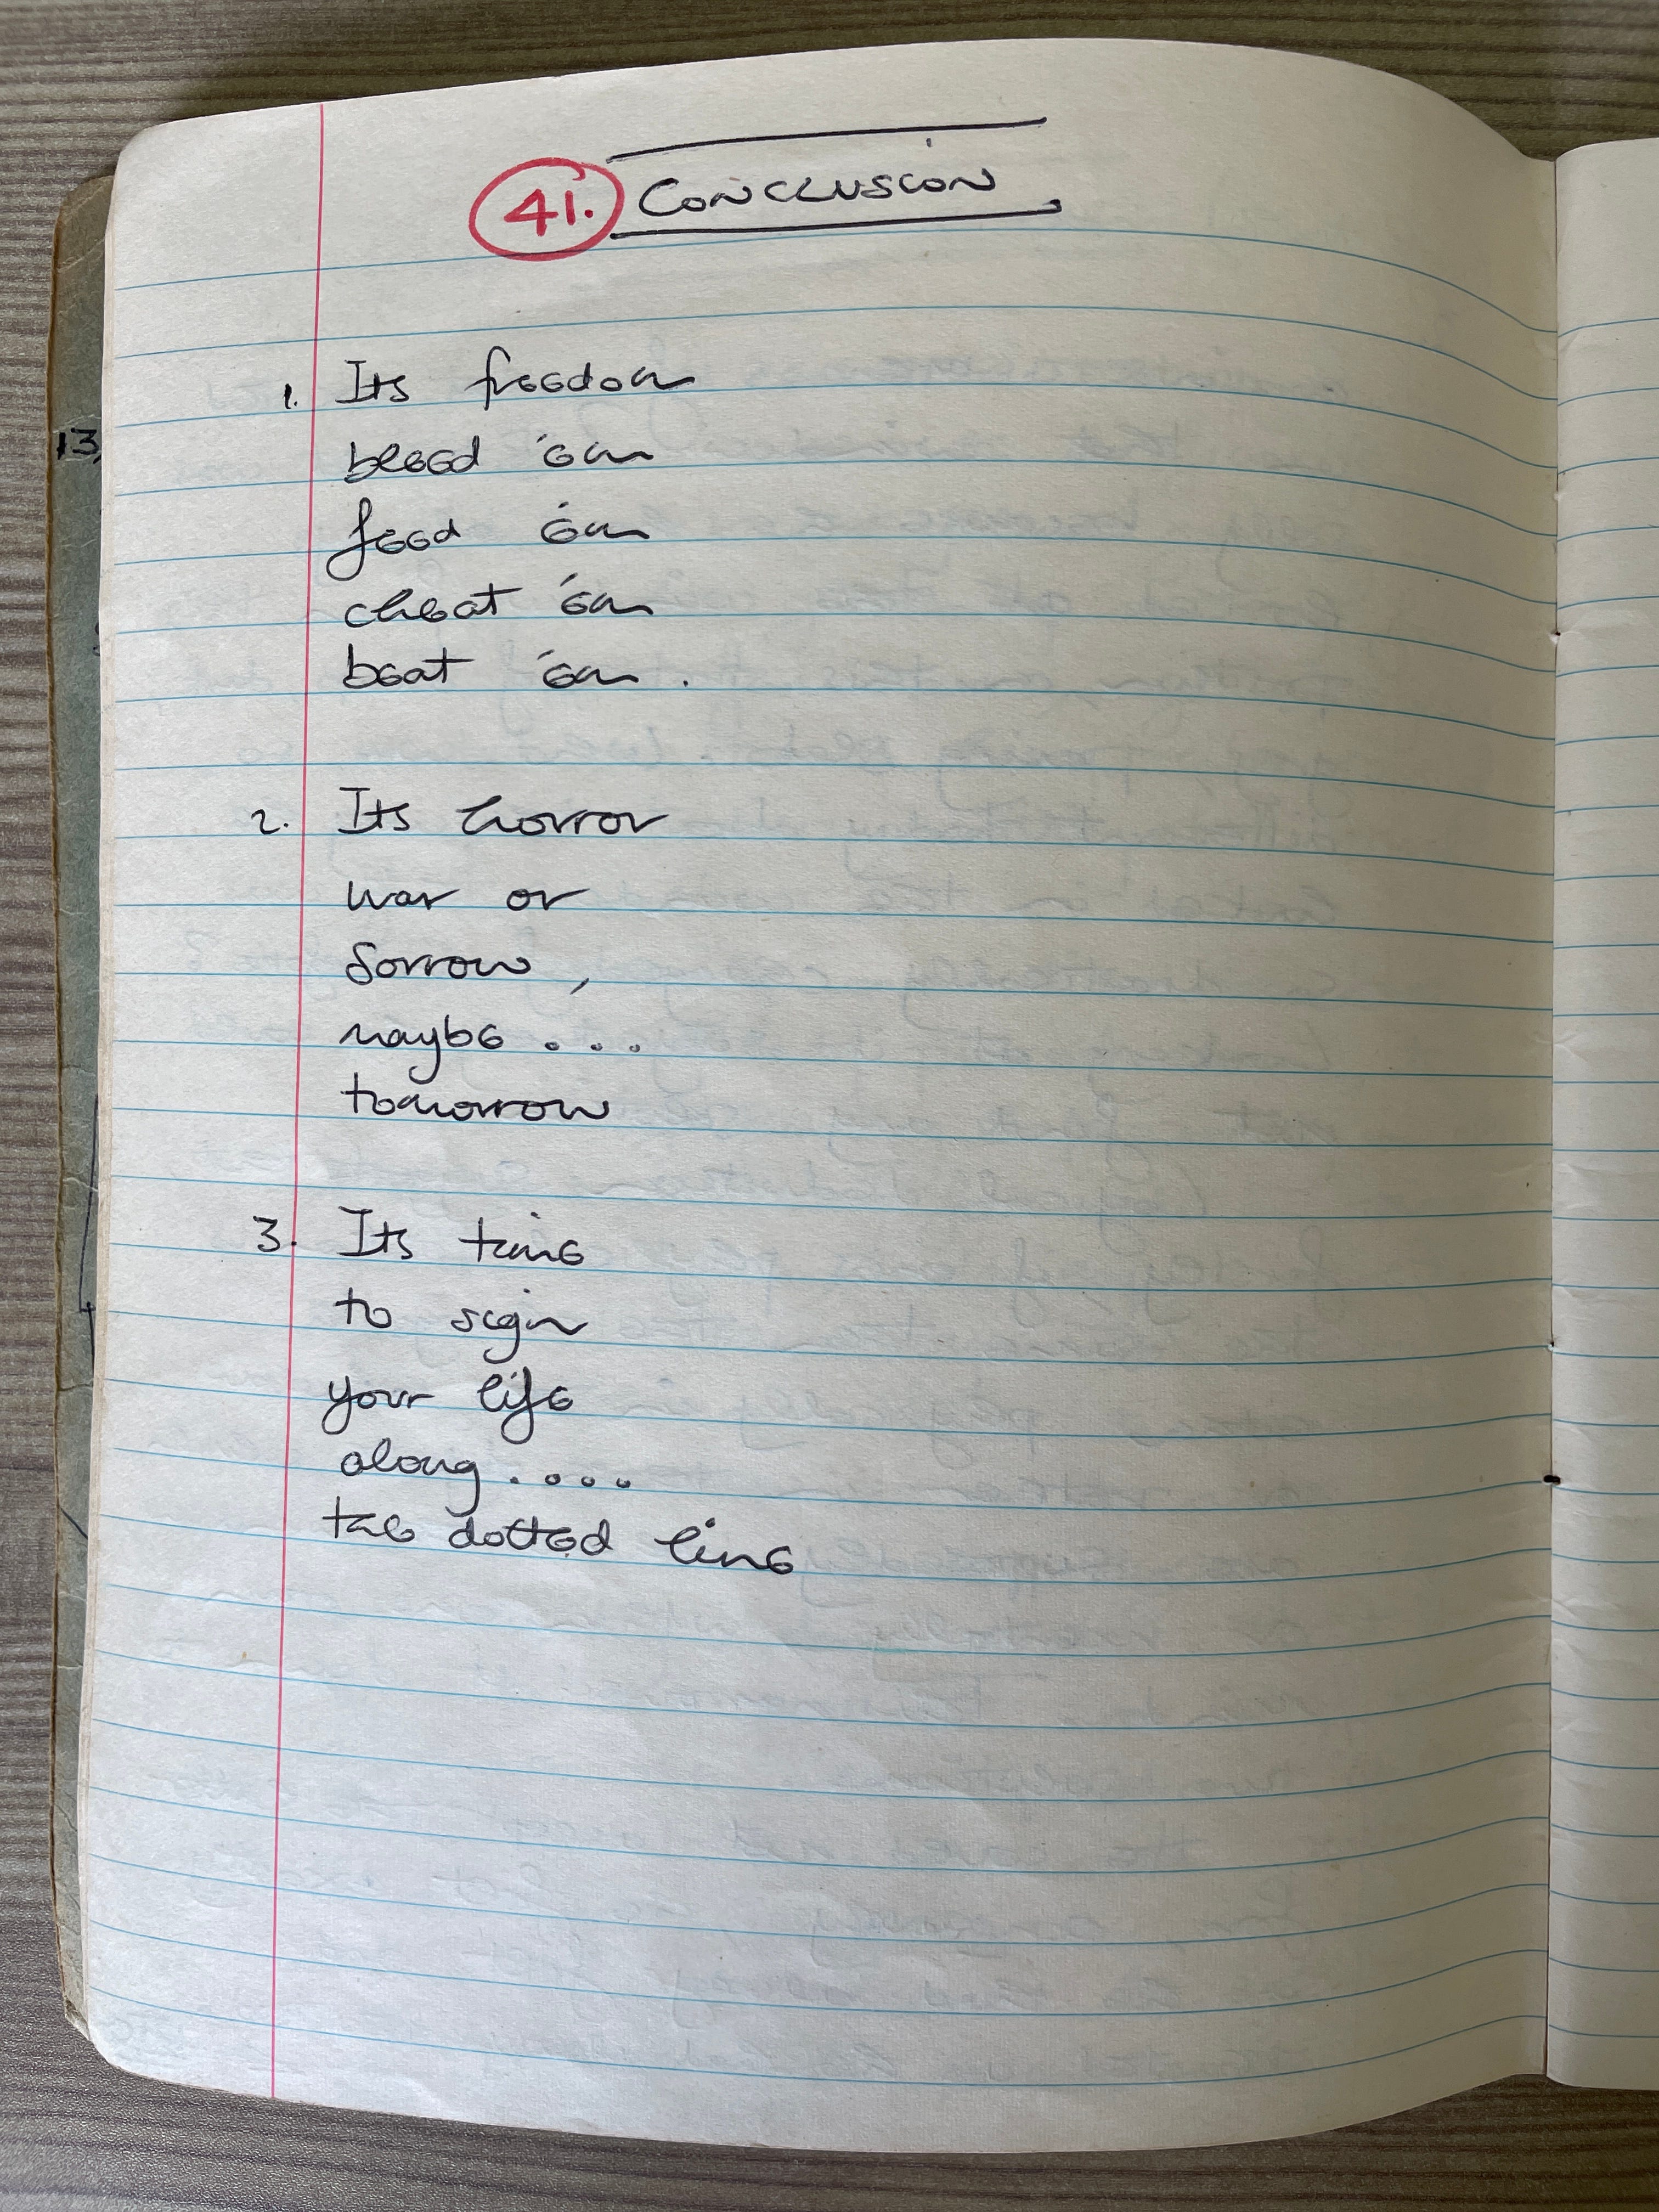 41. CONCLUSION
1. Its freedom
bleed 'em
feed 'em
cheat 'em
beat 'em.
2. Its horror
war or
sorrow,
maybe....
tomorrow
3. Its time
to sign
your life
along....
the dotted line
13,